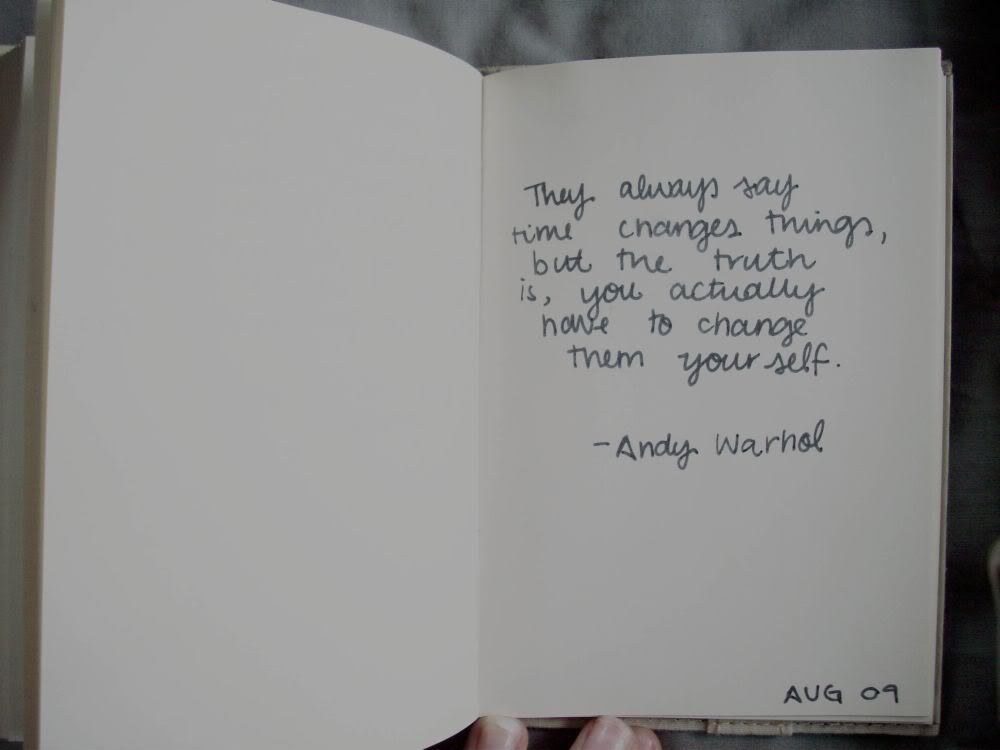 They always say
time changes things,
but the truth
is, you actually
have to change
them yourself.
-Andy Warhol
AUG 09